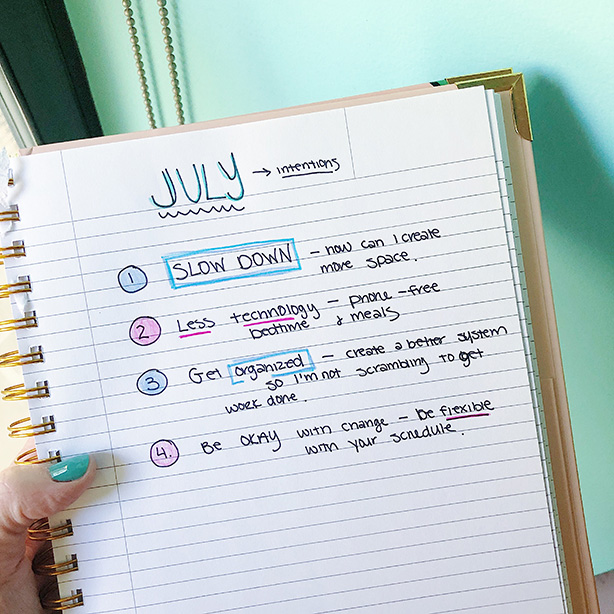 JULY → intentions
1 SLOW DOWN - how can I create
more space.
2 Less technology - phone-free
bedtime & meals
3 Get organized - create a better system
so I'm not scrambling to get
work done.
4. Be OKAY with change - be flexible
with your schedule.